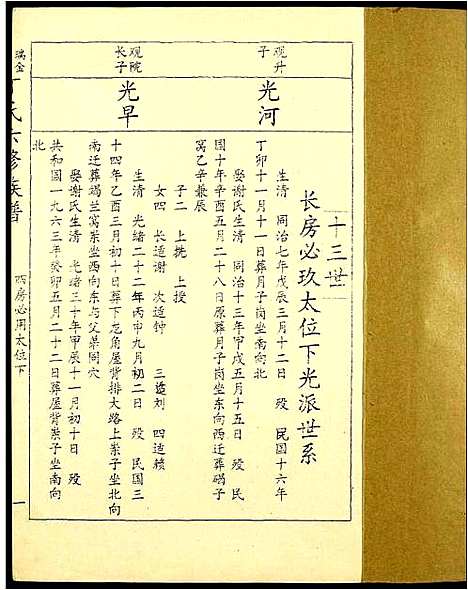 十三世
长房必玖太位下光派世系
观升
子
光河
生清 同治七年戊辰三月十二日 殁 民国十六年
丁卯十一月一日葬月子岗坐南向北
娶谢氏生清 同治十三年甲戌五月十五日 殁 民
国十年辛酉五月二十八日原葬月子岗坐东向西迁葬碢子
窝乙辛兼辰
子二 上挑 上授
女四 长适谢 次适钟 三适刘 四适赖
观院
长子
光早
生清 光绪二十二年丙申九月初二日 殁 民国三
十四年乙酉三月初十日葬下龙角屋背排大路上崇子坐北向
南迁葬竭兰窝崇坐西向东与父墓同穴
娶谢氏生清 光绪三十年甲辰十一月初十日 殁
共和国一九六三年癸卯五月二十二日葬屋背崇子坐南向
北
瑞金
丁氏六修族谱
西房必用太位下
一